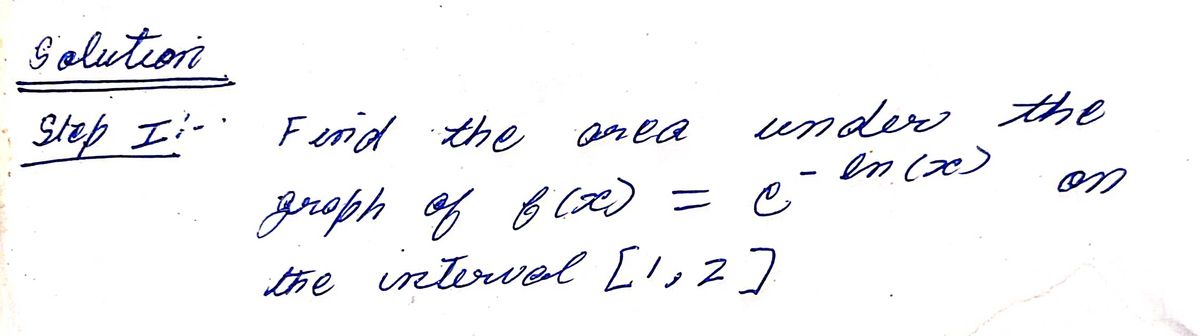 Solution
Step I:- Find the area under the
graph of f(x) = e^- ln(x) on
the interval [1, 2]